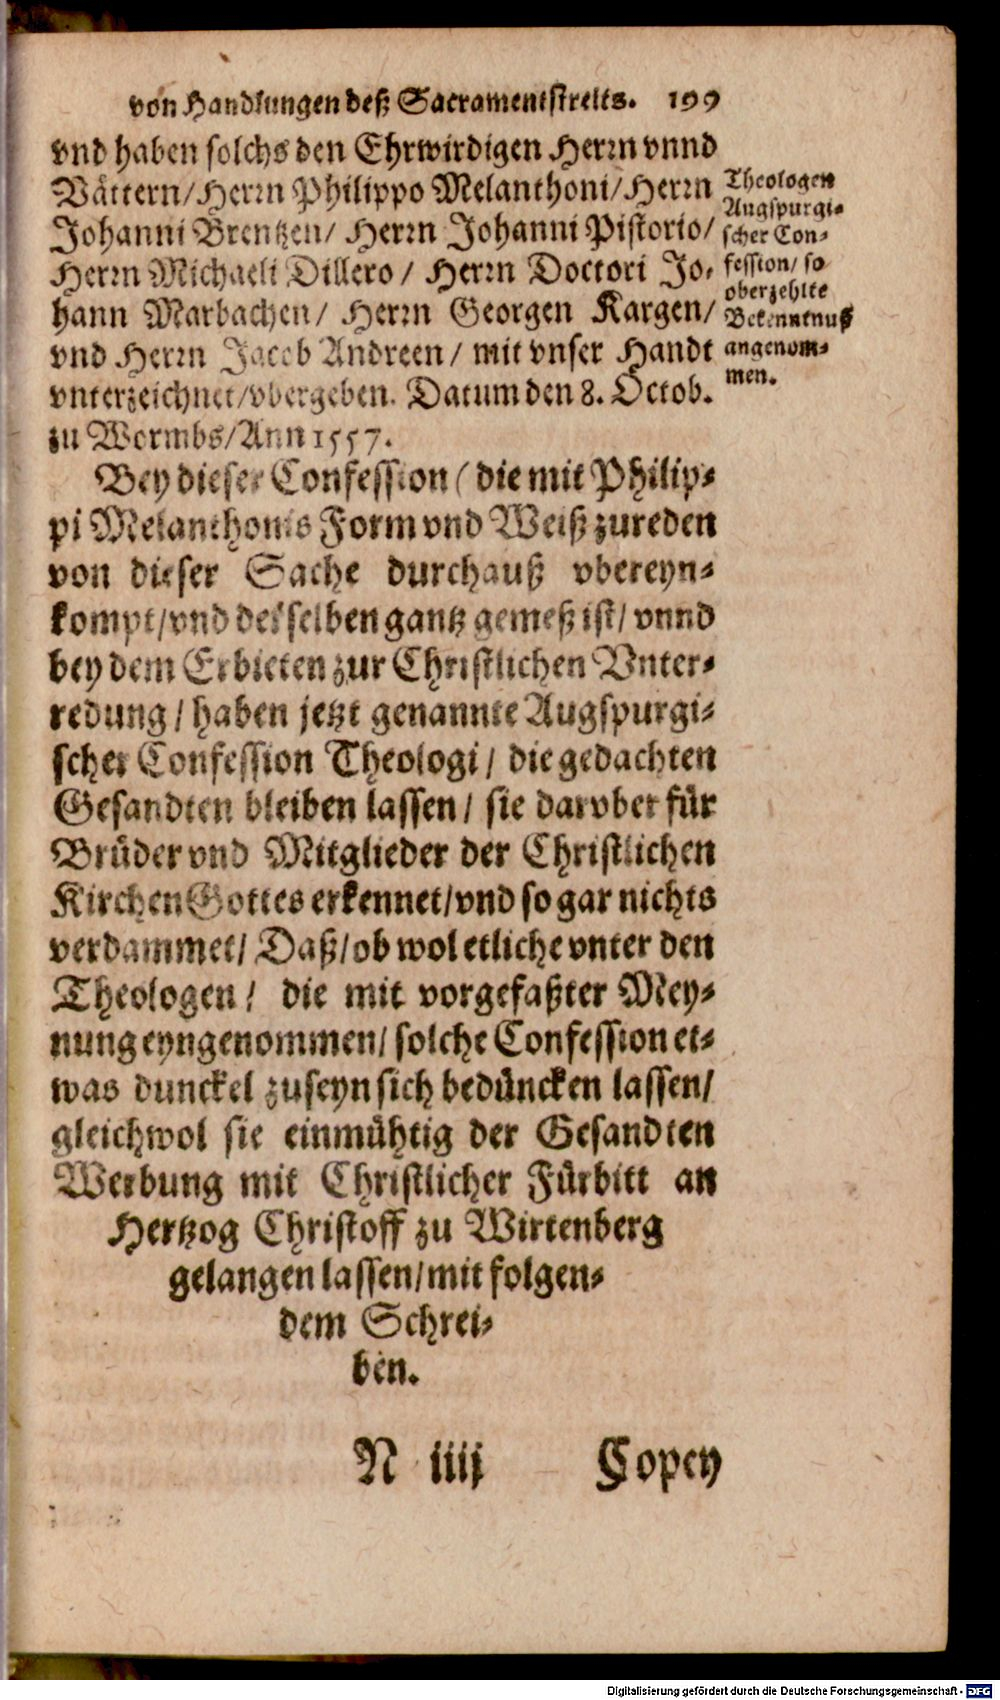 von Handlungen deß Sacramentstreits. 199
vnd haben solchs den Ehrwirdigen Herrn vnnd
Vättern/Herrn Philippo Melanthoni/Herrn
Johanni Brentzen/ Herrn Johanni Pistorio/
Herrn Michaeli Dillero/ Herrn Doctori Jo-
hann Marbachen/ Herrn Georgen Kargen/
vnd Herrn Jacob Andreen/ mit vnser Handt
vnterzeichnet/vbergeben. Datum den 8. Octob.
zu Wormbs/Ann 1557.
Theologen
Augspurgi-
scher Con-
fession/ so
oberzehlte
Bekenntnuß
angenom-
men.
Bey dieser Confession (die mit Philip-
pi Melanthonis Form vnd Weiß zureden
von dieser Sache durchauß vbereyn-
kompt/vnd derselben gantz gemeß ist/ vnnd
bey dem Erbieten zur Christlichen Vnter-
redung/ haben jetzt genannte Augspurgi-
scher Confession Theologi/ die gedachten
Gesandten bleiben lassen/ sie darvber für
Brüder vnd Mitglieder der Christlichen
Kirchen Gottes erkennet/vnd so gar nichts
verdammet/ Daß/ob wol etliche vnter den
Theologen/ die mit vorgefaßter Mey-
nung eyngenommen/ solche Confession et-
was dunckel zuseyn sich bedüncken lassen/
gleichwol sie einmühtig der Gesandten
Werbung mit Christlicher Fürbitt an
Hertzog Christoff zu Wirtenberg
gelangen lassen/mit folgen-
dem Schrei-
ben.
N iiij Copey
Digitalisierung gefördert durch die Deutsche Forschungsgemeinschaft - DFG